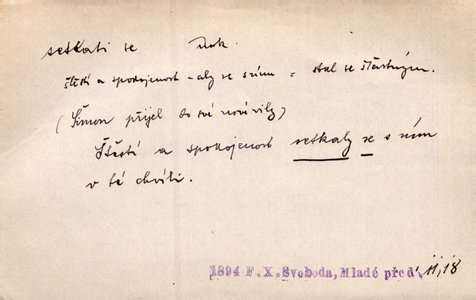 setkati se dok.
štěstí a spokojenost - aby se s ním = stal se šťastným.
(Šimon přijel do své nové vily)
Štěstí a spokojenost setkaly se s ním
v té chvíli.
1894 F.X.Svoboda, Mladé před. II, 18